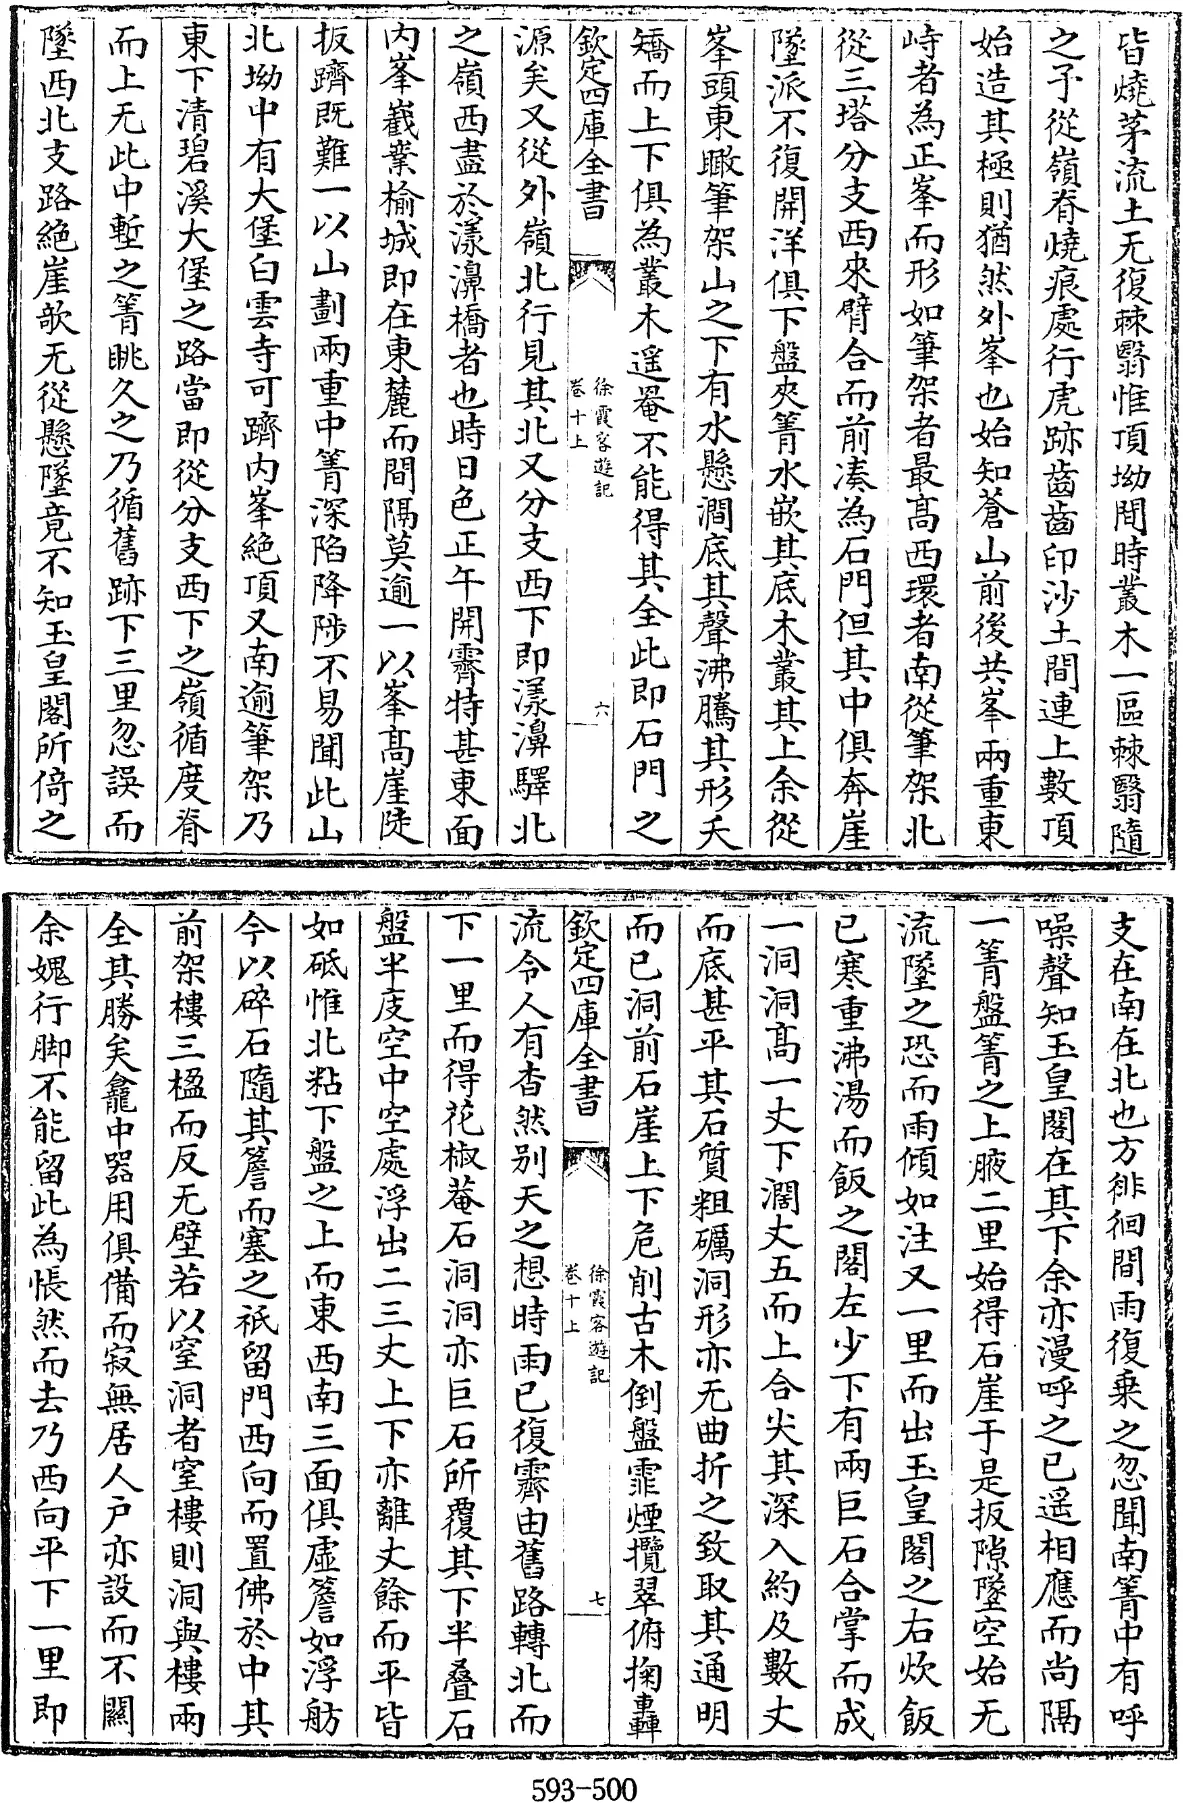 皆燒茅流土无復棘翳惟頂坳間時叢木一區棘翳隨
之予從嶺脊燒痕處行虎跡齒齒印沙土間連上數頂
始造其極則猶然外峯也始知蒼山前後共峯兩重東
峙者為正峯而形如筆架者最高西環者南從筆架北
從三塔分支西來臂合而前湊為石門但其中俱奔崖
墜派不復開洋俱下盤夾箐水嵌其底木叢其上余從
峯頭東瞰筆架山之下有水懸澗底其聲沸騰其形夭
矯而上下俱為叢木遥罨不能得其全此即石門之
欽定四庫全書
徐霞客遊記
卷十上
六
源矣又從外嶺北行見其北又分支西下即漾濞驛北
之嶺西盡於漾濞橋者也時日色正午開霽特甚東面
内峯嶻嶪榆城即在東麓而間隔莫逾一以峯高崖陡
扳躋既難一以山劃兩重中箐深陷降陟不易聞此山
北坳中有大堡白雲寺可躋内峯絶頂又南逾筆架乃
東下清碧溪大堡之路當即從分支西下之嶺循度脊
而上无此中塹之箐眺久之乃循舊跡下三里忽誤而
墜西北支路絶崖欹无從懸墜竟不知玉皇閣所倚之
支在南在北也方徘徊間雨復乗之忽聞南箐中有呼
噪聲知玉皇閣在其下余亦漫呼之已遥相應而尚隔
一箐盤箐之上腋二里始得石崖于是扳隙墜空始无
流墜之恐而雨傾如注又一里而出玉皇閣之右炊飯
已寒重沸湯而飯之閣左少下有兩巨石合掌而成
一洞洞高一丈下濶丈五而上合尖其深入約及數丈
而底甚平其石質粗礪洞形亦无曲折之致取其通明
而已洞前石崖上下危削古木倒盤霏煙攬翠俯掬轟
欽定四庫全書
徐霞客遊記
卷十上
七
流令人有杳然别天之想時雨已復霽由舊路轉北而
下一里而得花椒菴石洞洞亦巨石所覆其下半叠石
盤半庋空中空處浮出二三丈上下亦離丈餘而平皆
如砥惟北粘下盤之上而東西南三面俱虛簷如浮舫
今以碎石隨其簷而塞之祇留門西向而置佛於中其
前架樓三楹而反无壁若以窒洞者窒樓則洞與樓兩
全其勝矣龕中器用俱備而寂無居人户亦設而不關
余媿行脚不能留此為悵然而去乃西向平下一里即
593-500